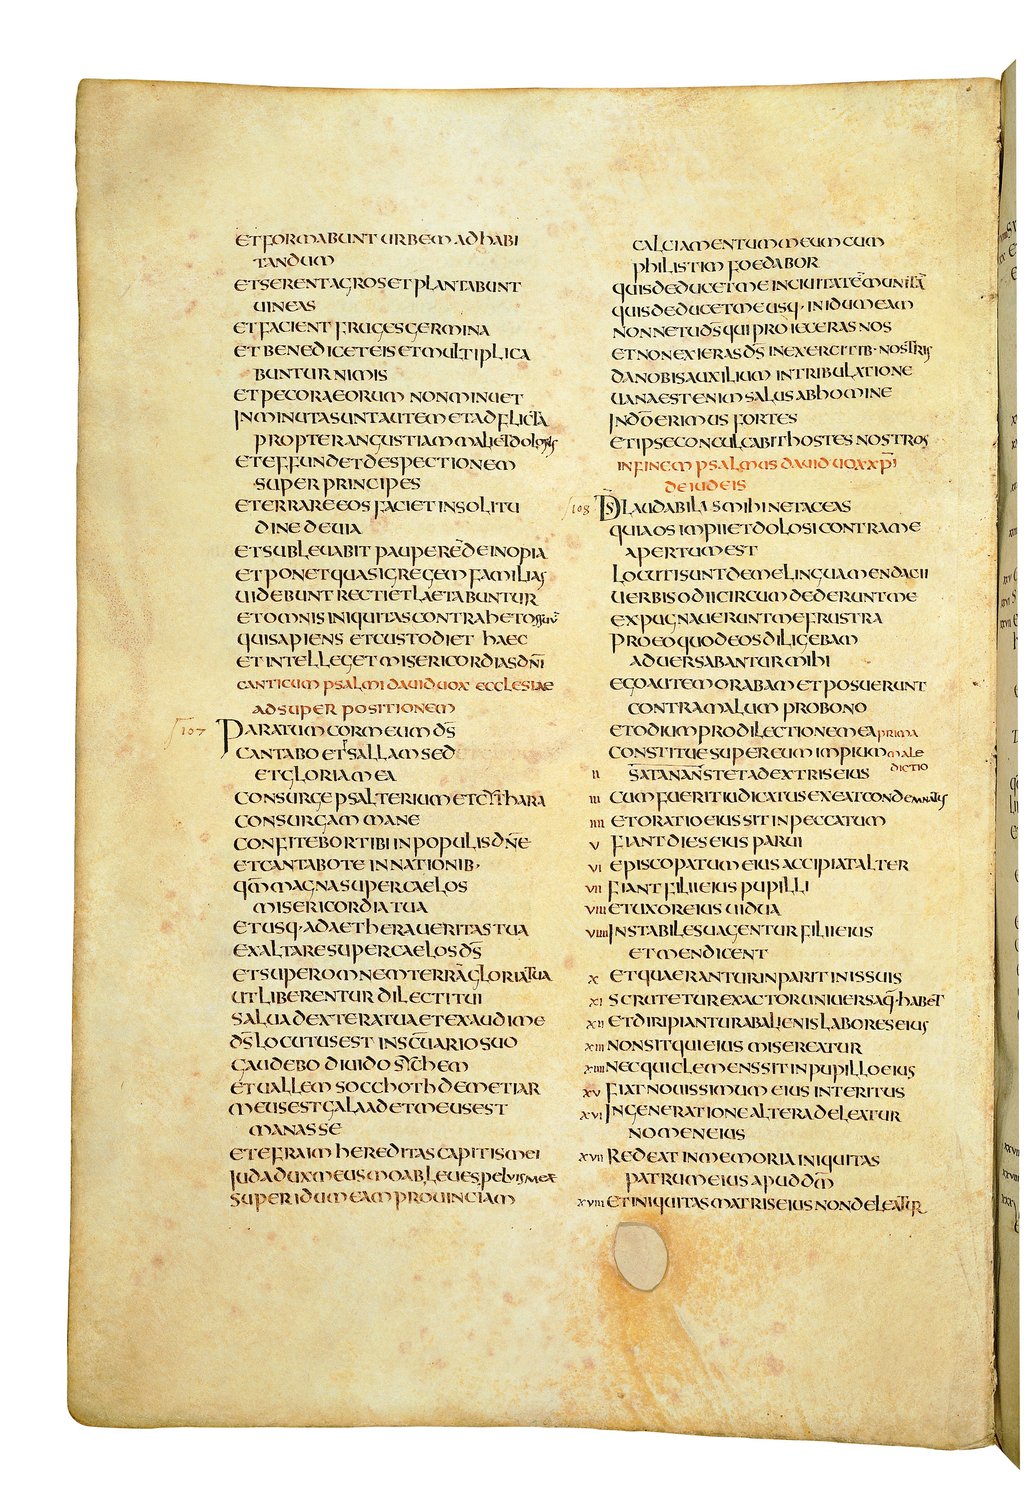 ET FORMABUNT URBEM AD HABI
TANDUM
ET SERENT AGROS ET PLANTABUNT
UINEAS
ET FACIENT FRUGES GERMINA
ET BENEDICET EIS ET MULTIPLICA
BUNTUR NIMIS
ET PECORA EORUM NON MINUET
INMINUTA SUNT AUTEM ET ADFLICTA
PROPTER ANGUSTIAM MALI ET DOLORIS
ET EFFUNDET DESPECTIONEM
SUPER PRINCIPES
ET ERRARE EOS FACIET IN SOLITU
DINE DEUIA
ET SUBLEUABIT PAUPERĒ DE INOPIA
ET PONET QUASI GREGEM FAMILIAS
UIDEBUNT RECTI ET LAETABUNTUR
ET OMNIS INIQUITAS CONTRAHET OS SUŪ
QUI SAPIENS ET CUSTODIET HAEC
ET INTELLEGET MISERICORDIAS DN̄I
CANTICUM PSALMI DAUID UOX ECCLESIAE
AD SUPER POSITIONEM
107 PARATUM COR MEUM DS̄
CANTABO ET PSALLAM SED
ET GLORIA MEA
CONSURGE PSALTERIUM ET CYTHARA
CONSURGAM MANE
CONFITEBOR TIBI IN POPULIS DN̄E
ET CANTABO TE IN NATIONIB·
QM̄ MAGNA SUPER CAELOS
MISERICORDIA TUA
ET USQ· AD AETHERA UERITAS TUA
EXALTARE SUPER CAELOS DS̄
ET SUPER OMNEM TERRĀ GLORIA TUA
UT LIBERENTUR DILECTI TUI
SALUA DEXTERA TUA ET EXAUDI ME
DS̄ LOCUTUS EST IN SC̄UARIO SUO
GAUDEBO DIUIDO SYCHEM
ET UALLEM SOCCHOTH DEMETIAR
MEUS EST GALAAD ET MEUS EST
MANASSE
ET EFRAIM HEREDITAS CAPITIS MEI
IUDA DUX MEUS MOAB LEUES PELUIS MEAE
SUPER IDUMEAM PROUINCIAM
CALCIAMENTUM MEUM CUM
PHILISTIM FOEDABOR
QUIS DEDUCET ME IN CIUITATĒ MUNITĀ
QUIS DEDUCET ME USQ· IN IDUMEAM
NONNE TU DS̄ QUI PROIECERAS NOS
ET NON EXIERAS DS̄ IN EXERCITIB· NOSTRIS
DA NOBIS AUXILIUM IN TRIBULATIONE
UANA EST ENIM SALUS AB HOMINE
IN DŌ ERIMUS FORTES
ET IPSE CONCULCABIT HOSTES NOSTROS
IN FINEM PSALMUS DAUID UOX XP̄I
DE IUDEIS
108 DS̄ LAUDABILIS MIHI NE TACEAS
QUIA OS IMPII ET DOLOSI CONTRA ME
APERTUM EST
LOCUTI SUNT DE ME LINGUA MENDACII
UERBIS ODII CIRCUMDEDERUNT ME
EXPUGNAUERUNT ME FRUSTRA
PRO EO QUOD EOS DILIGEBAM
ADUERSABANTUR MIHI
EGO AUTEM ORABAM ET POSUERUNT
CONTRA MALUM PRO BONO
ET ODIUM PRO DILECTIONE MEA PRIMA
CONSTITUE SUPER EUM IMPIUM MALE
II SATANAN STET A DEXTRIS EIUS DICTIO
III CUM FUERIT IUDICATUS EXEAT CONDEMNATUS
IIII ET ORATIO EIUS SIT IN PECCATUM
V FIANT DIES EIUS PARUI
VI EPISCOPATUM EIUS ACCIPIAT ALTER
VII FIANT FILII EIUS PUPILLI
VIII ET UXOR EIUS UIDUA
VIIII INSTABILES UAGENTUR FILII EIUS
ET MENDICENT
X ET QUAERANTUR IN PARIETINIS SUIS
XI SCRUTETUR EXACTOR UNIUERSA Q· HABET
XII ET DIRIPIANT UR ABALIENIS LABORES EIUS
XIII NON SIT QUI EIUS MISEREATUR
XIIII NEC QUI CLEMENS SIT IN PUPILLO EIUS
XV FIAT NOUISSIMUM EIUS INTERITUS
XVI IN GENERATIONE ALTERA DELEATUR
NOMEN EIUS
XVII REDEAT IN MEMORIA INIQUITAS
PATRUM EIUS APUD DM̄
XVIII ET INIQUITAS MATRIS EIUS NON DELEATUR